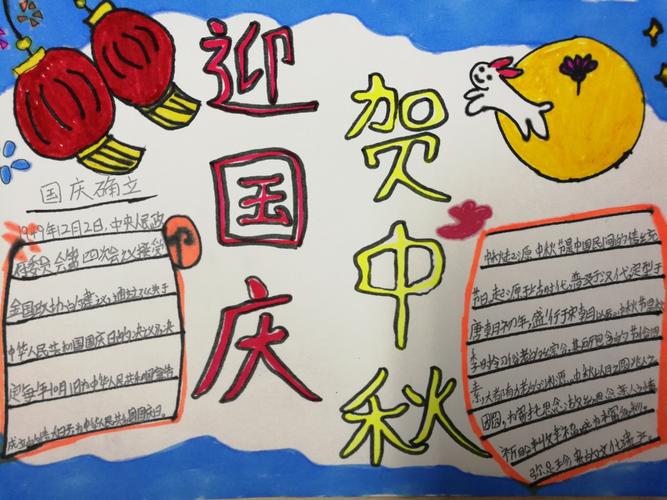 迎国庆
贺中秋
国庆确立
1949年12月2日,中央人民政
府委员会第四次会议接受
全国政协的建议,通过了《关于
中华人民共和国国庆日的决议》决
定每年10月1日为中华人民共和国宣告
成立的 日 为中华人民共和国国庆日。
中秋起源 中秋节是中国民间的传统
节日,起源于上古时代,普及于汉代,定型于
唐朝初年,盛行于宋朝以后。中秋节是
季时
素,大都有古老的渊源。中秋以月之圆兆人之
团圆,为寄托思念故乡,思念亲人之情
祈盼丰收、幸福,成为丰富多彩、
弥足珍贵的文化遗产。